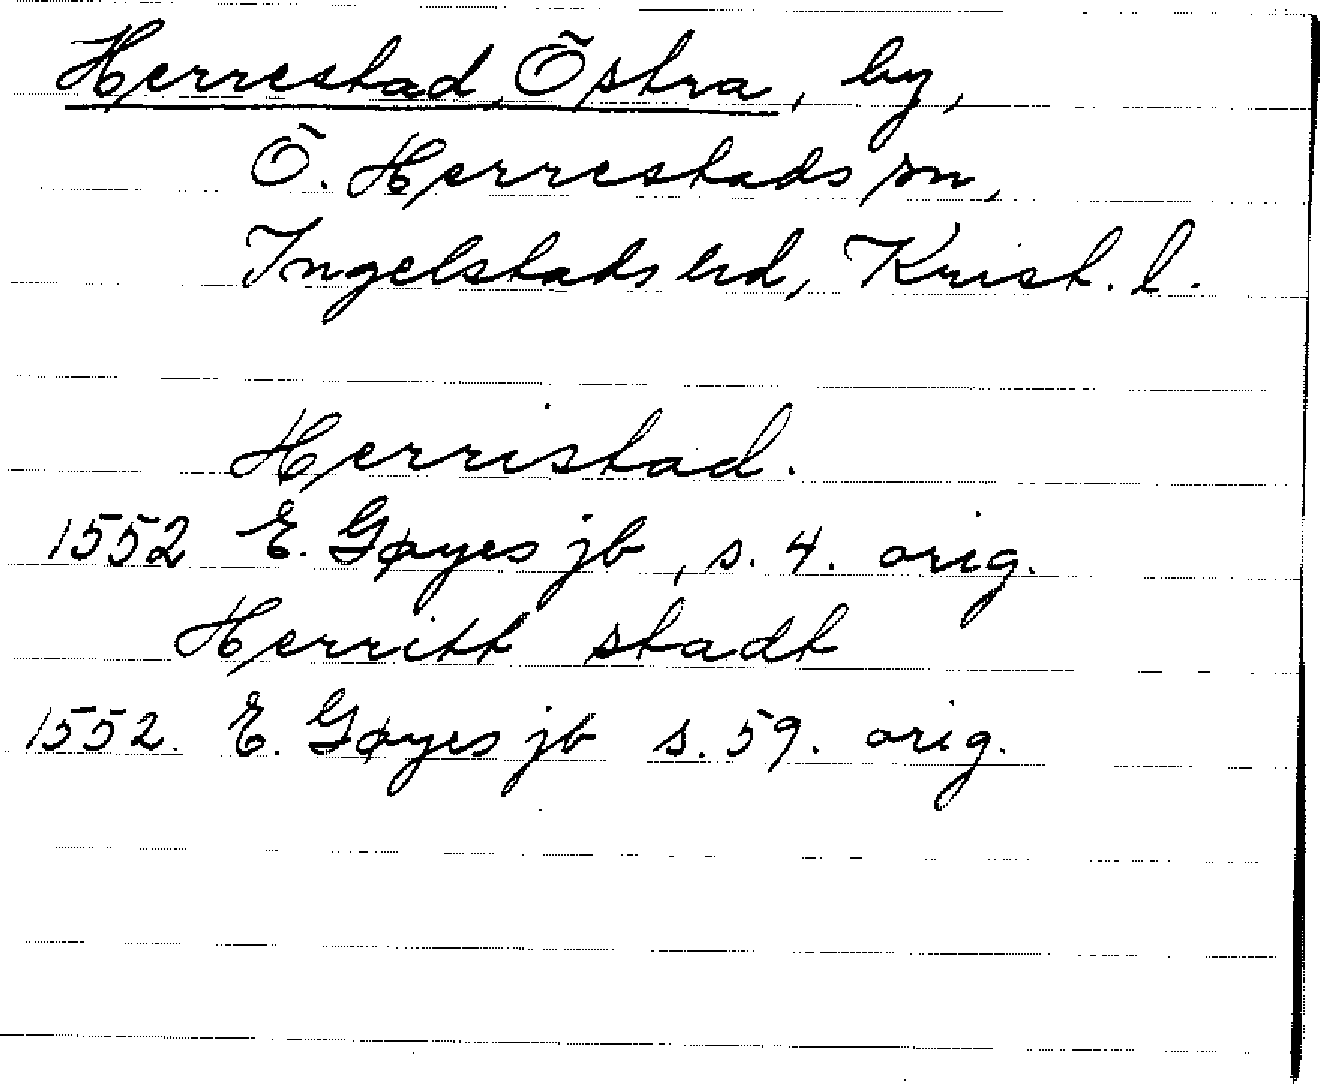 Herrestad, Östra, by,
Ö. Herrestads sn,
Ingelstads hd, Krist. l.
Herristad.
1552 E. Gøyes jb, s. 4. orig.
Herritt stadt
1552. E. Gøyes jb s. 59. orig.